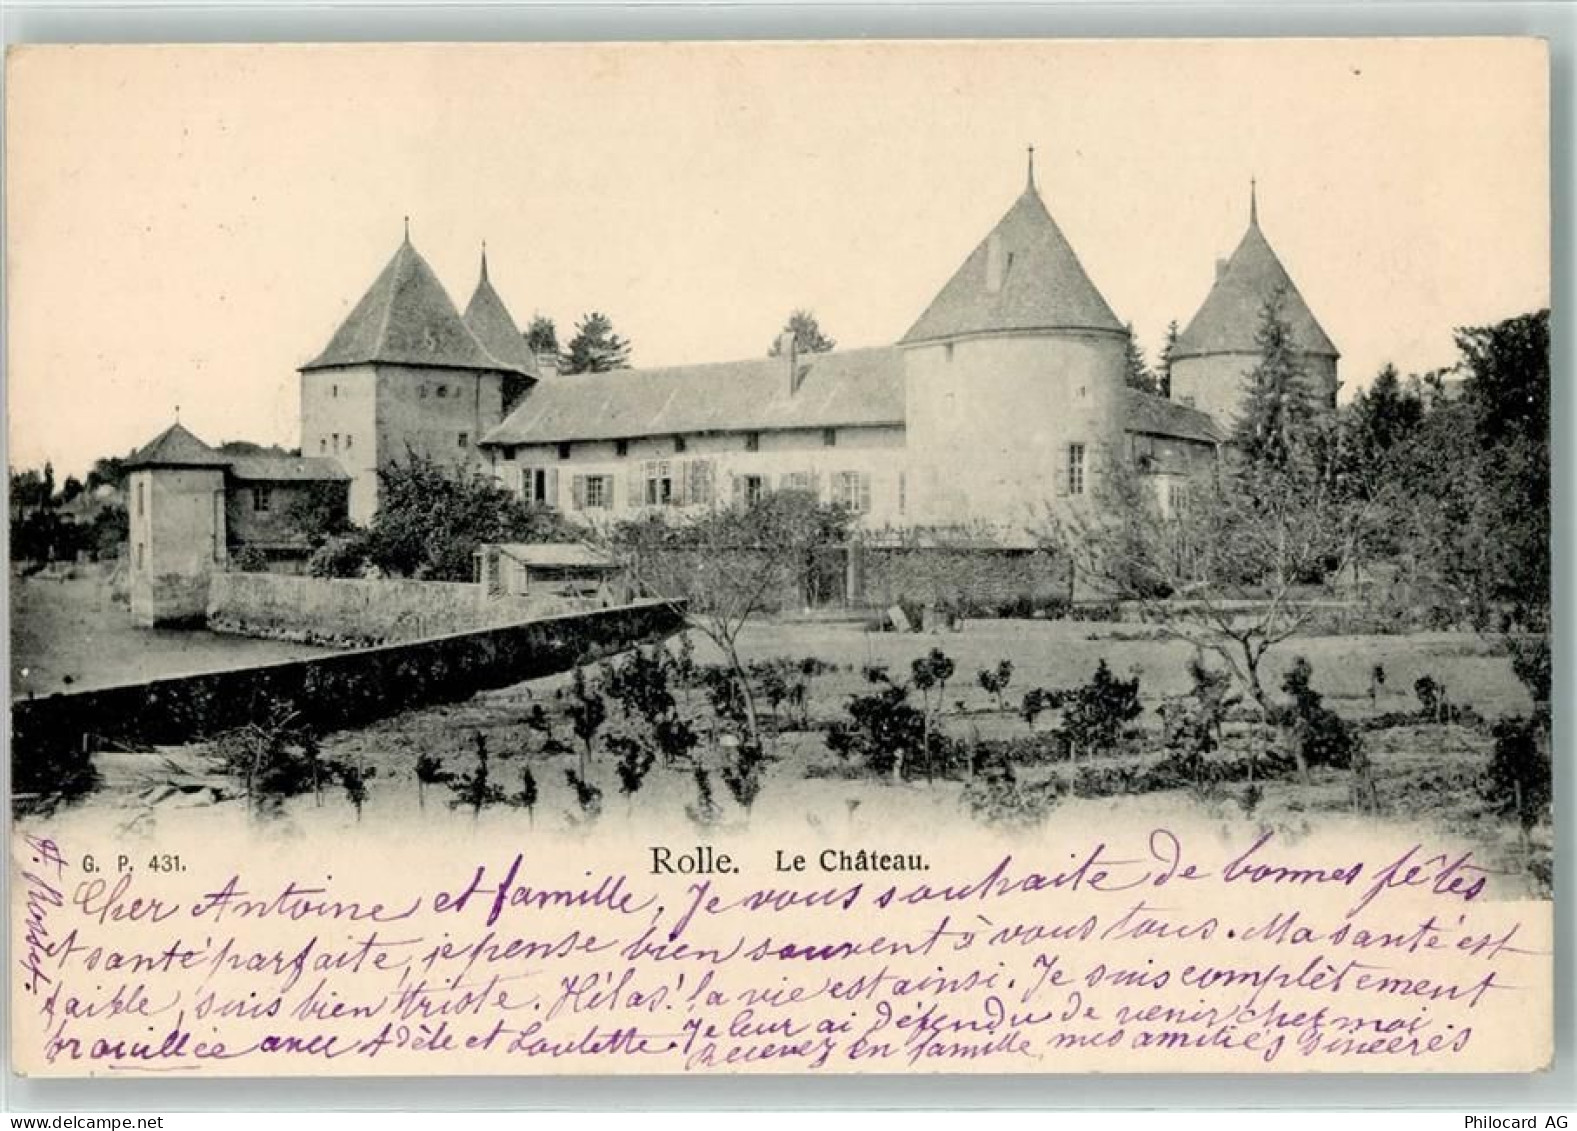 G. P. 431.
Rolle. Le Château.
Cher Antoine et famille, Je vous souhaite De bonnes fêtes
et santé parfaite, je pense bien souvent à vous tous. Ma santé est
faible, suis bien triste. Hélas! la vie est ainsi. Je suis complètement
brouillée avec Adèle et Loulette. Je leur ai défendu De venir chez moi
Recevez en famille, mes amitiés sincères
delcampe.net
Philocard AG